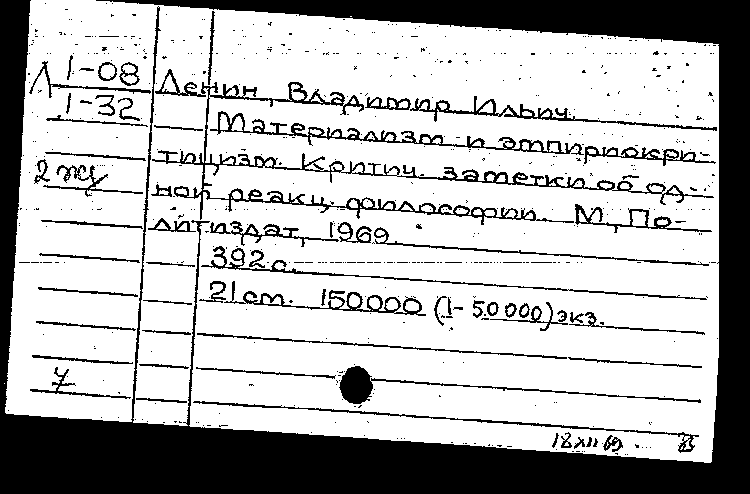 Л 1-08
1-32
2 жу
Ленин, Владимир Ильич.
Материализм и эмпириокри-
тицизм. Критич. заметки об од-
ной реакц. философии. М., По-
литиздат, 1969.
392 с.
21 см. 150000 (1-50000) экз.
7
18 XII 69.